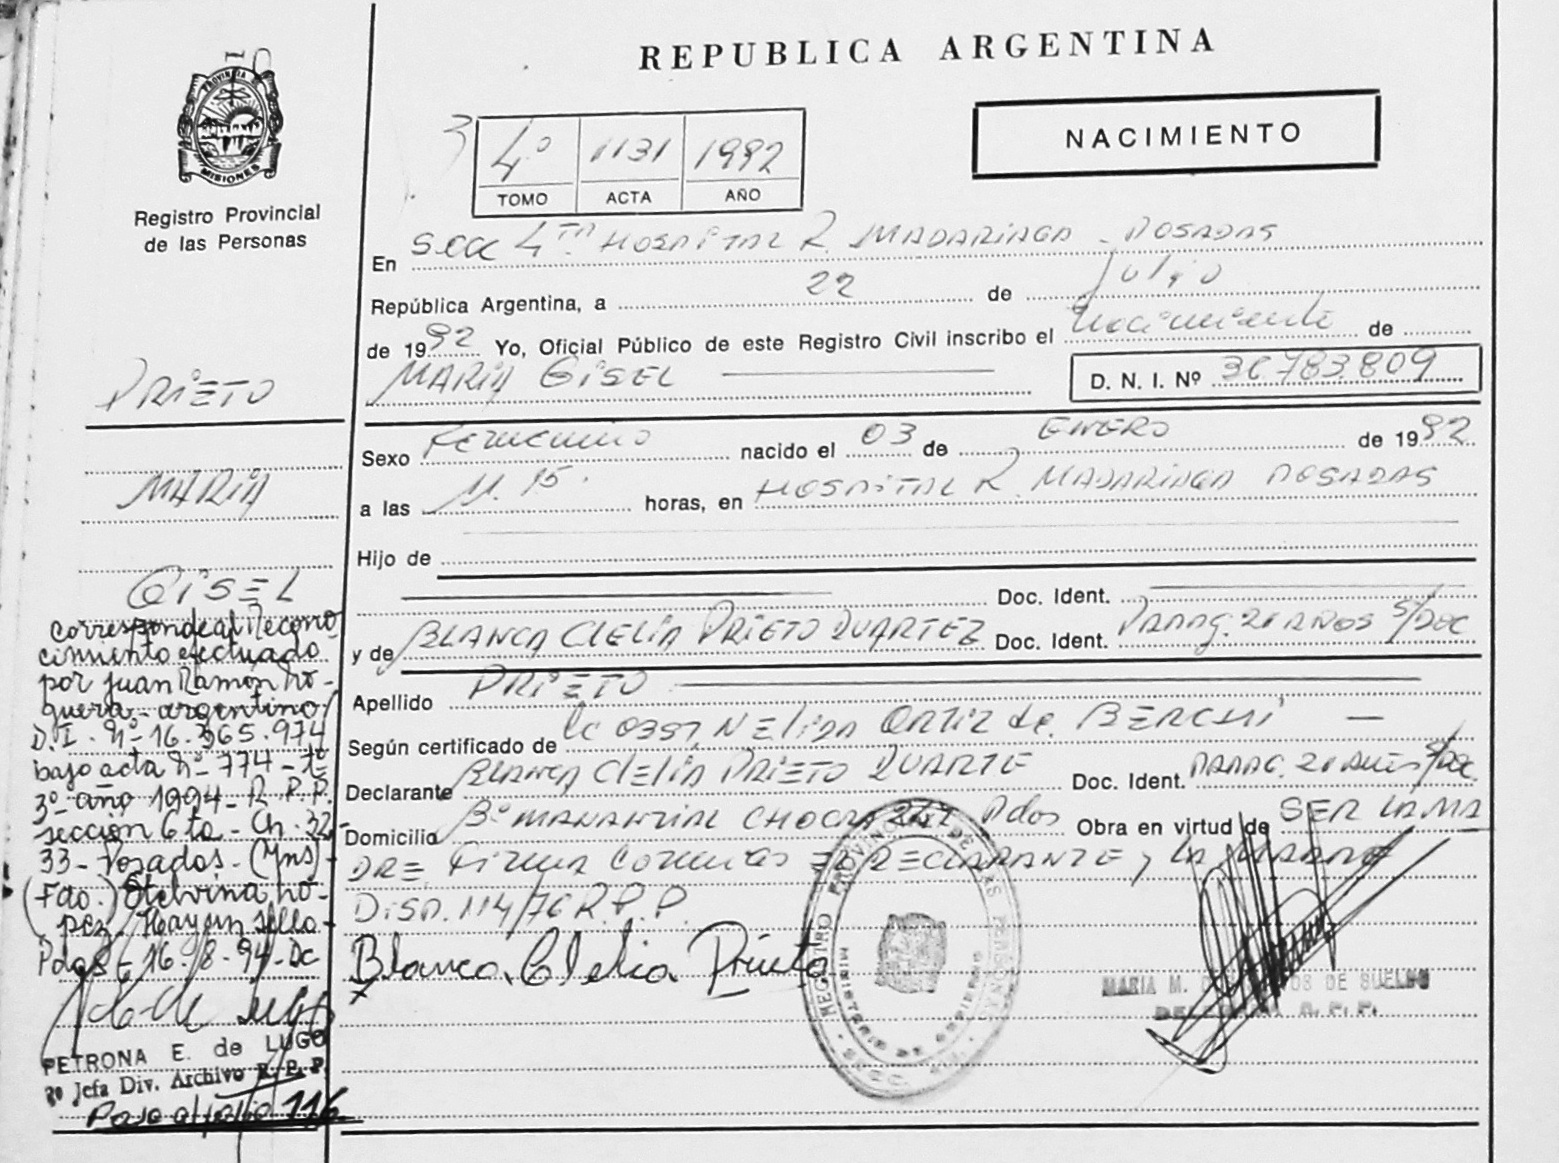 REPUBLICA ARGENTINA
PROVINCIA DE
MISIONES
Registro Provincial
de las Personas
3
4º 1131 1992
TOMO ACTA AÑO
NACIMIENTO
En Secc 4ta HOSPITAL R. MADARIAGA - POSADAS
República Argentina, a 22 de Julio
de 1992 Yo, Oficial Público de este Registro Civil inscribo el Nacimiento de
MARIA GISEL D. N. I. Nº 36783809
PRIETO
MARIA
GISEL
Sexo Femenino nacido el 03 de ENERO de 1992
a las 11.15. horas, en HOSPITAL R. MADARIAGA POSADAS
Hijo de
Doc. Ident.
y de BLANCA CLELIA PRIETO DUARTEZ Doc. Ident. PARAG. 21 AÑOS S/DOC
Apellido PRIETO
Según certificado de lc 0357 NELIDA ORTIZ de BERCHI
Declarante BLANCA CLELIA PRIETO DUARTE Doc. Ident. PARAG. 21 AÑOS S/DOC
Domicilio Bº MANANTIAL CHOCRA 247 Pdos Obra en virtud de SER LA MA
DRE. Firma Conmigo EL DECLARANTE y LA MADRE
DISP. 114/76 R.P.P.
Blanca Clelia Prieto
corresponde al Recono
cimiento efectuado
por Juan Ramón No-
guera - argentino
D.I. Nº 16.365.974
bajo acta nº 774 - tº
3º año 1994 - R.P.P.
sección 6ta - Ch. 32-
33 - Posadas. (Mns)
(Fdo.) Etelvina Lo-
pez - Hay un sello -
Pdas - 16/8-94-Dc
PETRONA E. de LUGO
Jefa Div. Archivo R. P. P.
116
REGISTRO PROVINCIAL DE LAS PERSONAS
MINISTERIO DE GOBIERNO
MARIA M. DE SUELDO
R. P. P.